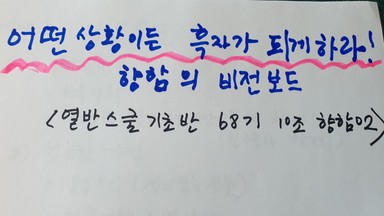 어떤 상황이든 흑자가 되게하라!
향함의 비전보드
<열반스쿨 기초반 68기 10조 향함02>